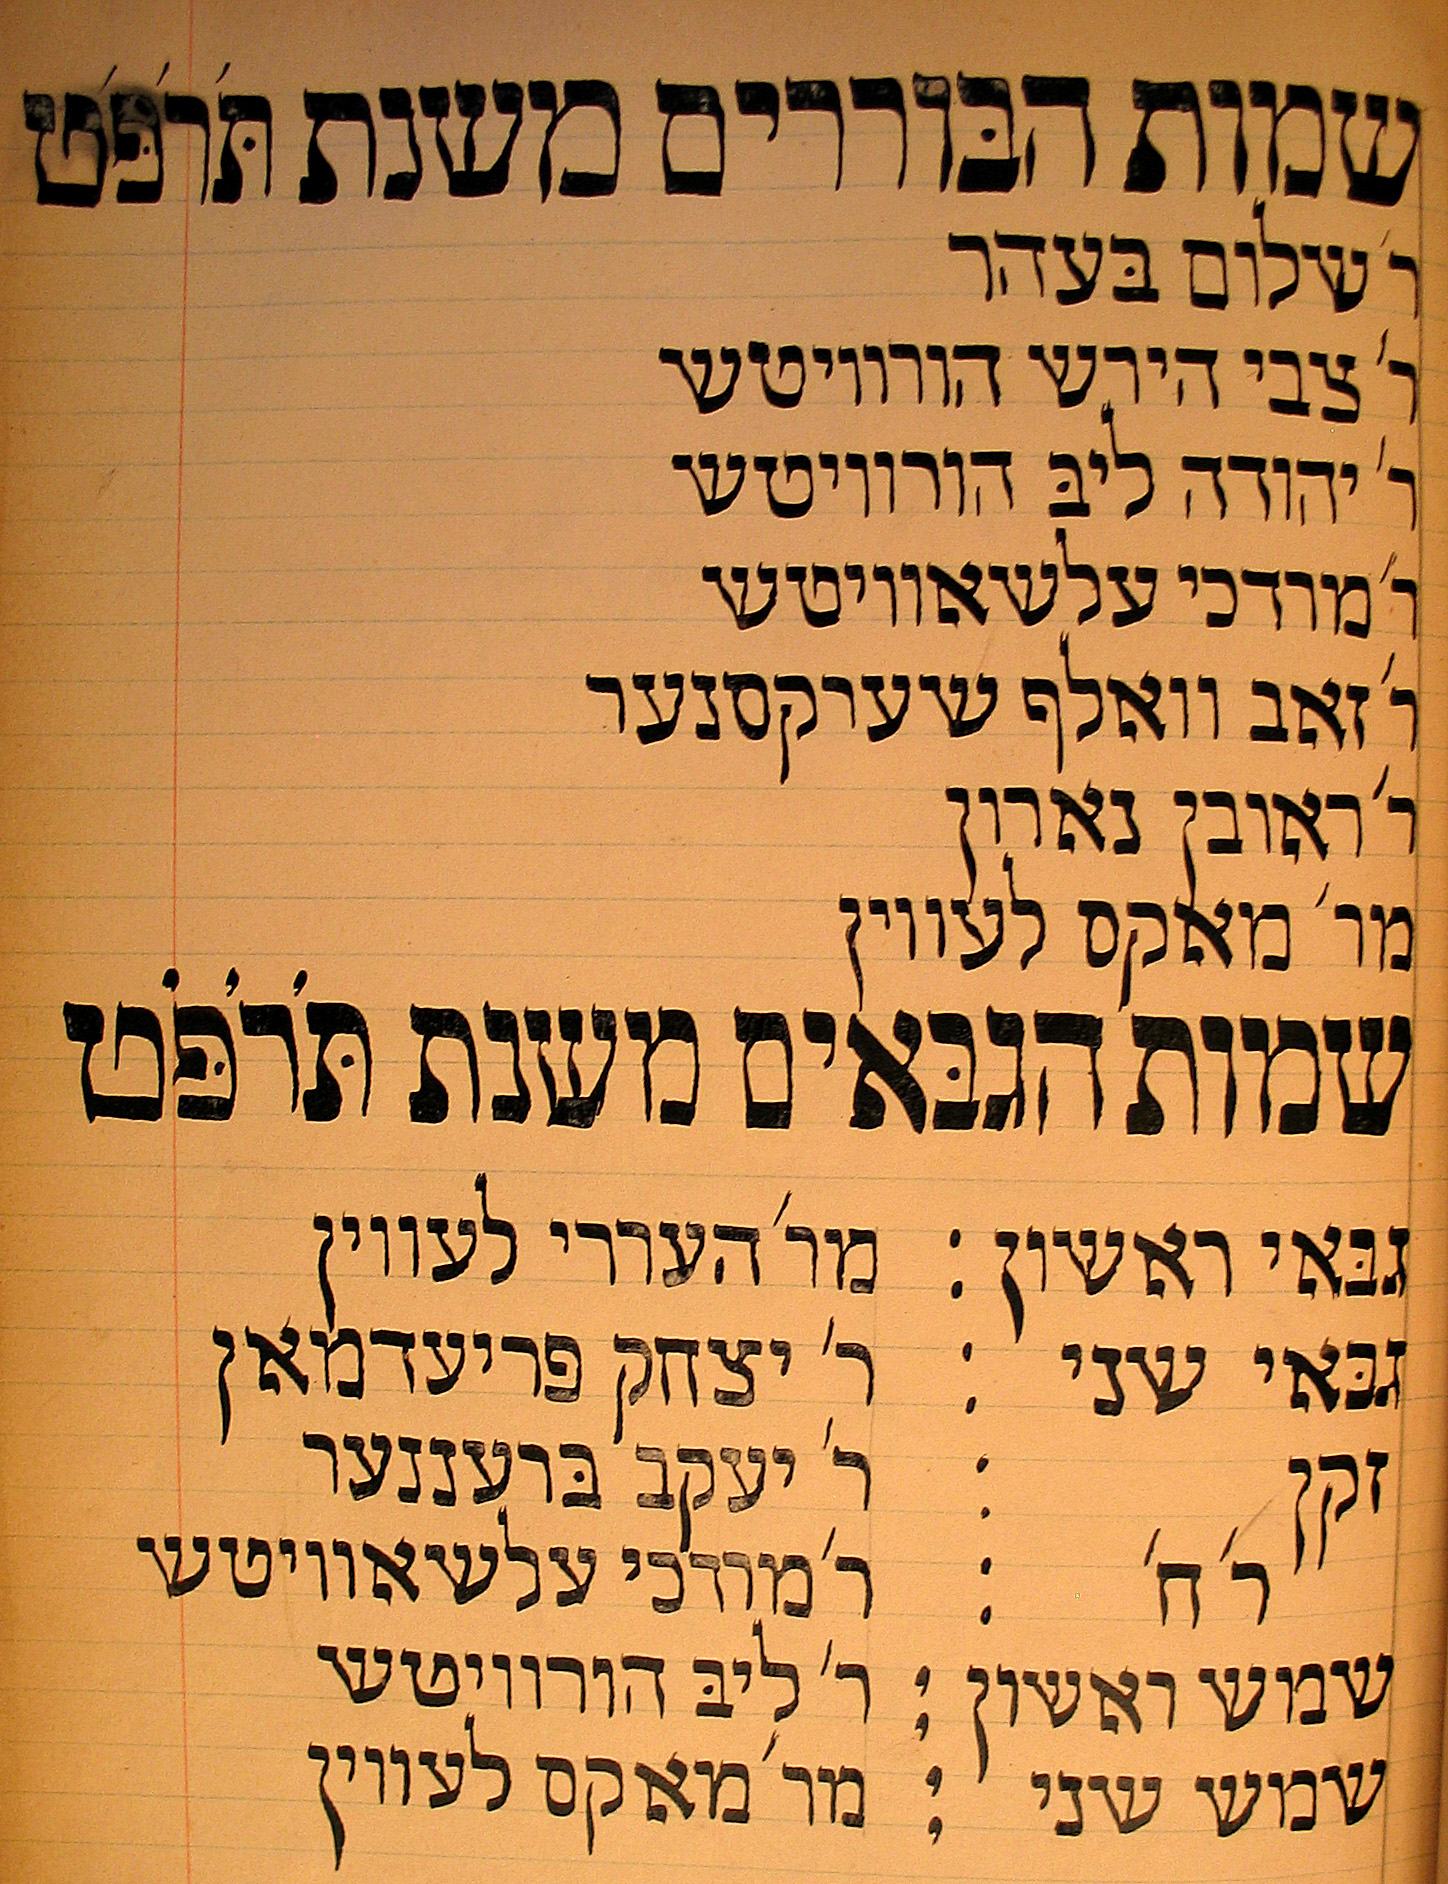 שמות הבּוררים משנת תּ׳ר׳פּ׳ט
ר׳ שלום בּעהר
ר׳ צבי הירש הורוויטש
ר׳ יהודה ליבּ הורוויטש
ר׳ מורדכי עלשאוויטש
ר׳ זאב וואלף שערקסנער
ר׳ ראובן נארון
מר׳ מאקס לעווין
שמות הגבּאים משנת תּ׳ר׳פּ׳ט
גבּאי ראשון : מר׳ העררי לעווין
גבּאי שני : ר׳ יצחק פריעדמאן
זקן : ר׳ יעקב בּרעננער
ר׳ ח׳ : ר׳ מורדכי עלשאוויטש
שמש ראשון : ר׳ ליבּ הורוויטש
שמש שני : מר׳ מאקס לעווין